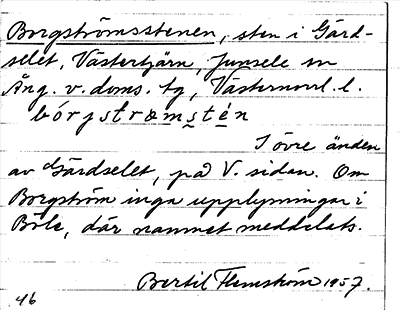 Borgströmsstenen, sten i Gärd-
selet, Västertjärn, Junsele sn
Ång. v. doms. tg, Västernorrl. l.
bórgstrœmstén
I övre änden
av Gärdselet, på V. sidan. Om
Borgström inga upplysningar i
Böle, där namnet meddelats.
Bertil Flemström 1957.
46